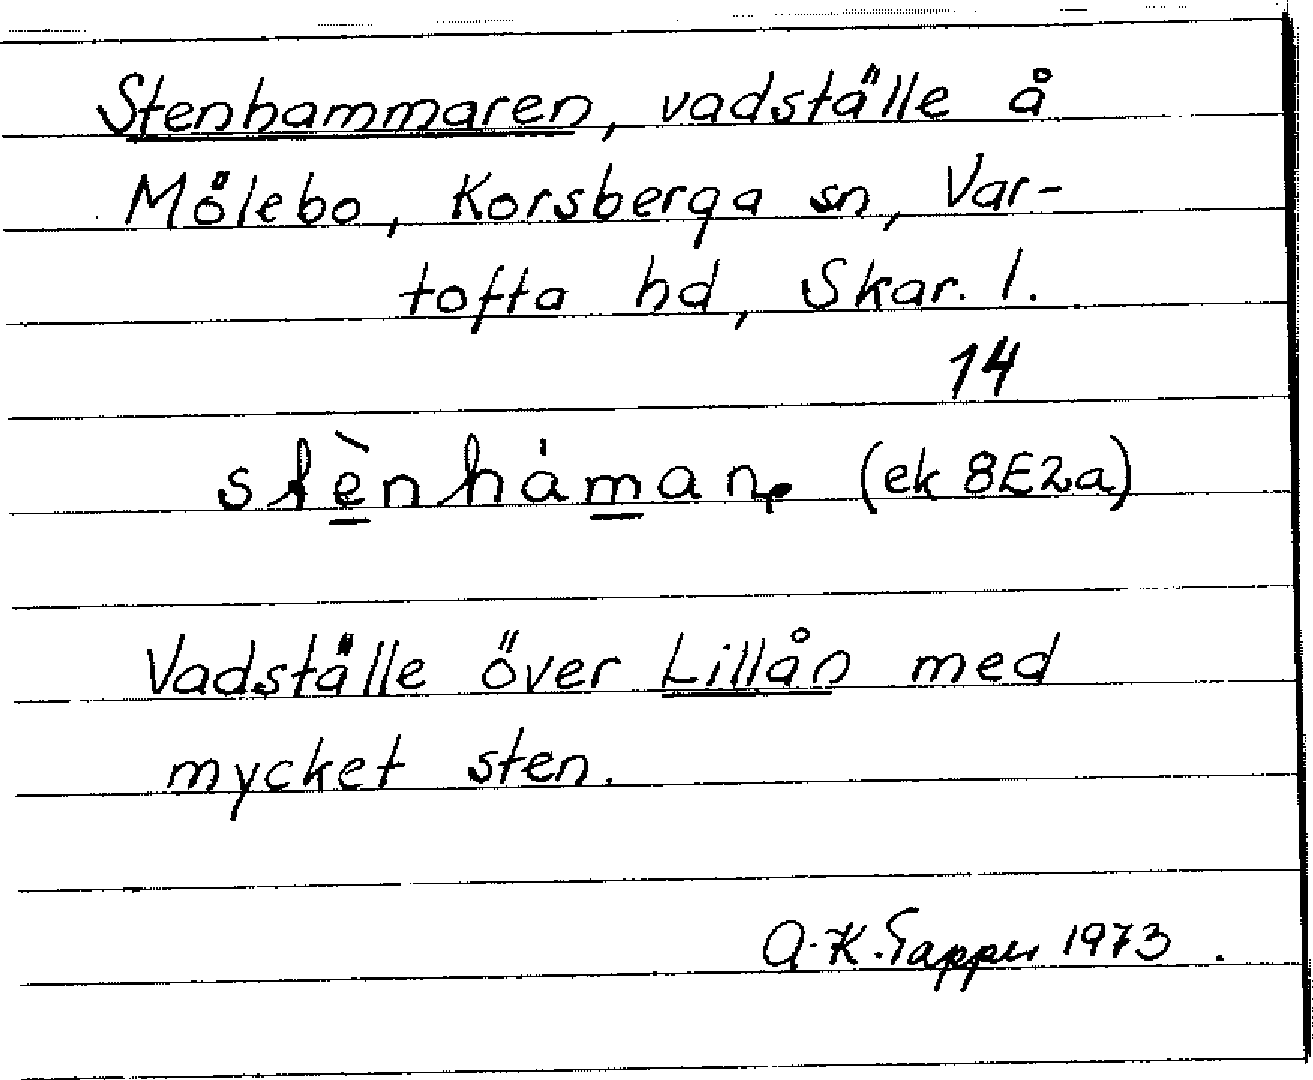 Stenhammaren, vadställe å
Mölebo, Korsberga sn, Var-
tofta hd, Skar. l.
14
stènháman. (ek 8E2a)
Vadställe över Lillån med
mycket sten.
A-K. Tapper 1973.